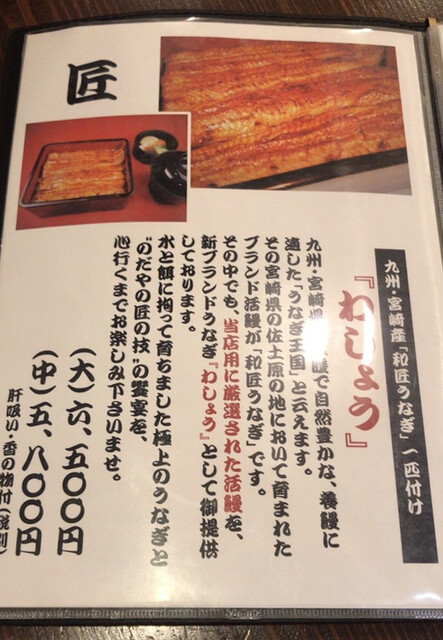 匠
九州・宮崎産「和匠うなぎ」一匹付け
『わしょう』
九州・宮崎県 暖で自然豊かな、養鰻に
適した「うなぎ王国」と云えます。
その宮崎県の佐土原の地において育まれた
ブランド活鰻が「和匠うなぎ」です。
その中でも、当店用に厳選された活鰻を、
新ブランドうなぎ『わしょう』として御提供
しております。
水と餌に拘って育ちました極上のうなぎと
“のだやの匠の技”の饗宴を、
心行くまでお楽しみ下さいませ。
(大)六、五〇〇円
(中)五、八〇〇円
肝吸い・香の物付(税別)